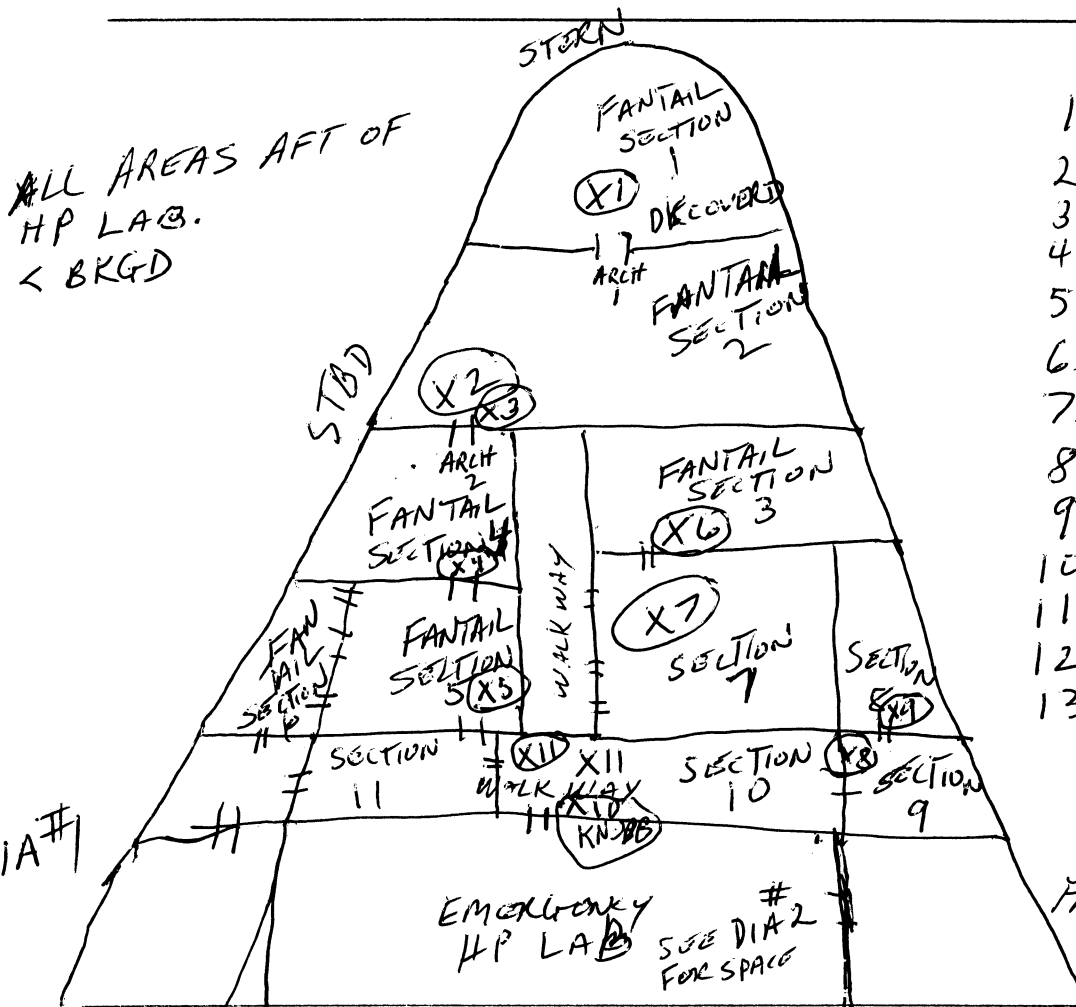 STERN
ALL AREAS AFT OF
HP LAB.
< BKGD
FANTAIL
SECTION
1
X1
DISCOVERD
ARCH
1
FANTAIL
SECTION
2
STBD
X2
X3
ARCH
2
FANTAIL
SECTION 4
X4
FANTAIL
SECTION
3
X6
WALKWAY
X7
SECTION
7
FAN
TAIL
SECTION
6
FANTAIL
SECTION
5 X5
SECTION
8 X9
SECTION
11
X11 X11
WALKWAY
X10
KNOBB
SECTION
10
X8
SECTION
9
DIA #1
EMERGENCY
HP LAB
SEE DIA # 2
FOR SPACE
1
2
3
4
5
6.
7
8
9
10
11
12
13